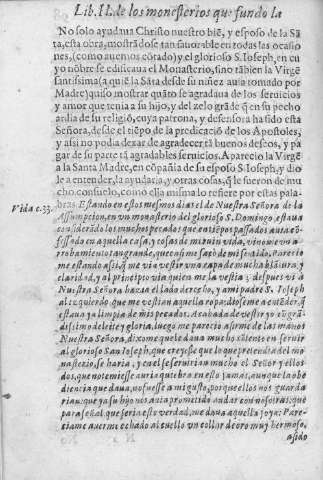 Lib. II. de los monesterios que fundo la
No solo ayudaua Christo nuestro biẽ, y esposo de la Sã
ta, esta obra, mostrãdose tan fauorable en todas las ocasio
nes, (como auemos cõtado) y el glorioso S. Ioseph, en cu
yo nõbre se edificaua el Monasterio, sino tãbien la Virgẽ
santissima (a quiẽ la Sãta desde su niñez auia tomado por
Madre) quiso mostrar quãto se agradaua de los seruicios
y amor que tenia a su hijo, y del zelo grãde q̃ en su pecho
ardia de su religiõ, cuya patrona, y defensora ha sido esta
Señora, desde el tiẽpo de la predicaciõ de los Apostoles,
y assi no podia dexar de agradecer tã buenos deseos, y pa
gar de su parte tã agradables seruicios. Aparecio la Virgẽ
a la Santa Madre, en cõpañia de su esposo S. Ioseph, y dio
le a entender, la ayudaria, y otras cosas, q̃ le fueron de mu
cho consuelo, como ella misma lo refiere por estas pala-
Vida c. 33.
bras. Estando en estos mesmos dias el de Nuestra Señora de la
Assumpcion, en vn monasterio del glorioso S. Domingo, estaua
considerãdo los muchos pecados que en tiẽpos passados auia cõ-
fessado en aquella casa, y cosas de mi ruin vida, vinome vn a-
probamiento tan grande, que casi me sacò de mi sentido. Pareciò
me estando assi, q̃ me via vestir vna ropa de mucha blãcura, y
claridad, y al principio no via quien me la vestia; despues vi a
Nuestra Señora hazia el lado derecho, y a mi padre S. Ioseph
al izquierdo que me vestian aquella ropa: diose me a entẽder, q̃
estaua ya limpia de mis pecados. Acabada de vestir yo cõ grã-
dissimo deleite y gloria, luego me parecio asirme de las manos
Nuestra Señora, dixome que le daua mucho cõtento en seruir
al glorioso San Ioseph, que creyesse que lo que pretendia del mo
nasterio, se haria, y en el se seruiria mucho el Señor y ellos
dos, que no temiesse auria quiebra en esto jamas, aunque la obe
diencia que daua, no fuesse a mi gusto, porque ellos nos guarda
rian: que ya su hijo nos auia prometido andar con nosotras: que
para señal que seria esto verdad, me daua aquella joya: Pare-
ciame auerme echado al cuello vn collar de oro muy hermoso,
asido